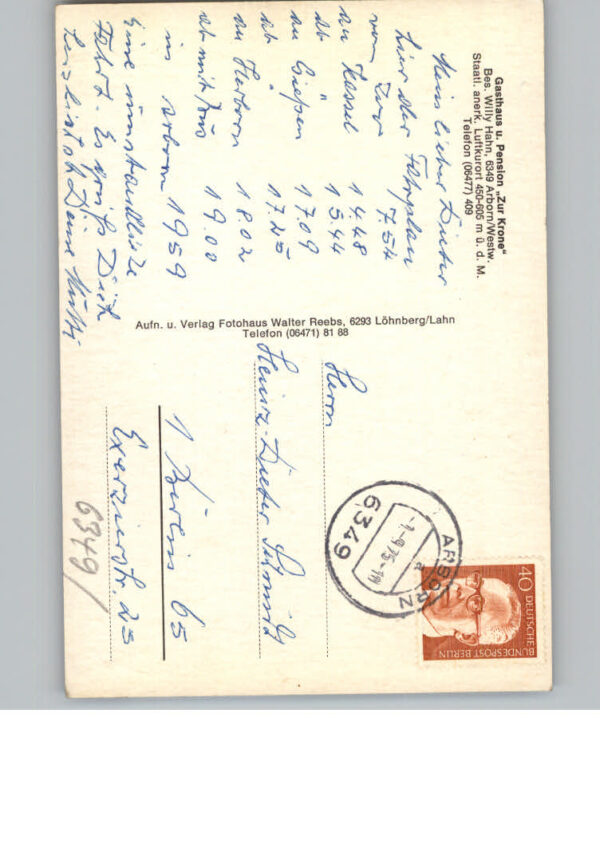 Gasthaus u. Pension „Zur Krone“
Bes. Willy Hahn, 6349 Arborn/Westw.
Staatl. anerk. Luftkurort 450-605 m ü. d. M.
Telefon (06477) 409
Mein lieber Dieter
hier der Fahrplan
vom Zoo 7.54
an Kassel 14.48
ab " 15.44
an Gießen 17.09
ab " 17.25
an Herborn 18.02
ab mit Bus 19.00
in Arborn 19.59
Eine
Fahrt. Es grüßt Dich
herzlichst Deine Mutti
Aufn. u. Verlag Fotohaus Walter Reebs, 6293 Löhnberg/Lahn
Telefon (06471) 81 88
Herrn
Heinz-Dieter Schmitz
1 Berlin 65
Exerzierstr. 23
6349/
ARBORN
6349
a
40
DEUTSCHE
BUNDESPOST BERLIN